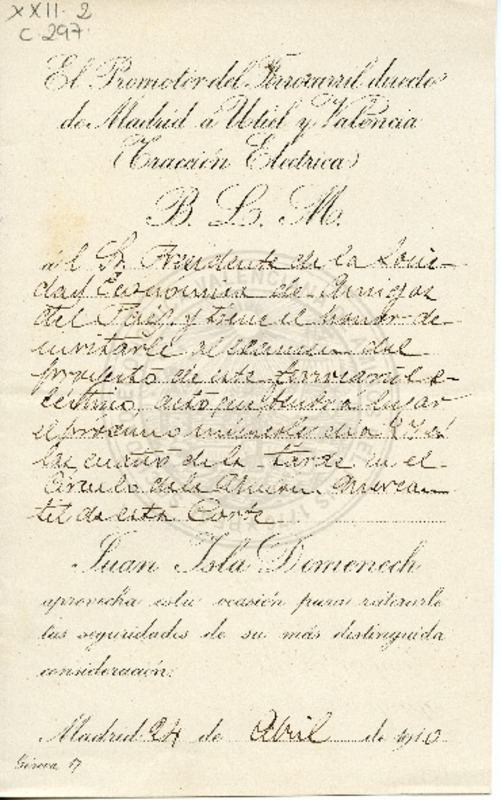 XXII. 2
C 297.
El Promotor del Ferrocarril directo
de Madrid á Utiel y Valencia
(Tracción Eléctrica)
B. L. M.
al Sr. Presidente de la Socie-
dad Economica de Amigos
del País, y tiene el honor de
invitarle al examen del
proyecto de este ferrocarril e-
lectrico, acto que tendra lugar
el próximo miercoles dia 27 á
las cuatro de la tarde en el
Circulo de la Union Mercan-
til de esta Corte
Juan Isla Domenech
aprovecha esta ocasión para reiterarle
las seguridades de su más distinguida
consideración.
Madrid 24 de Abril de 1910
Génova, 17